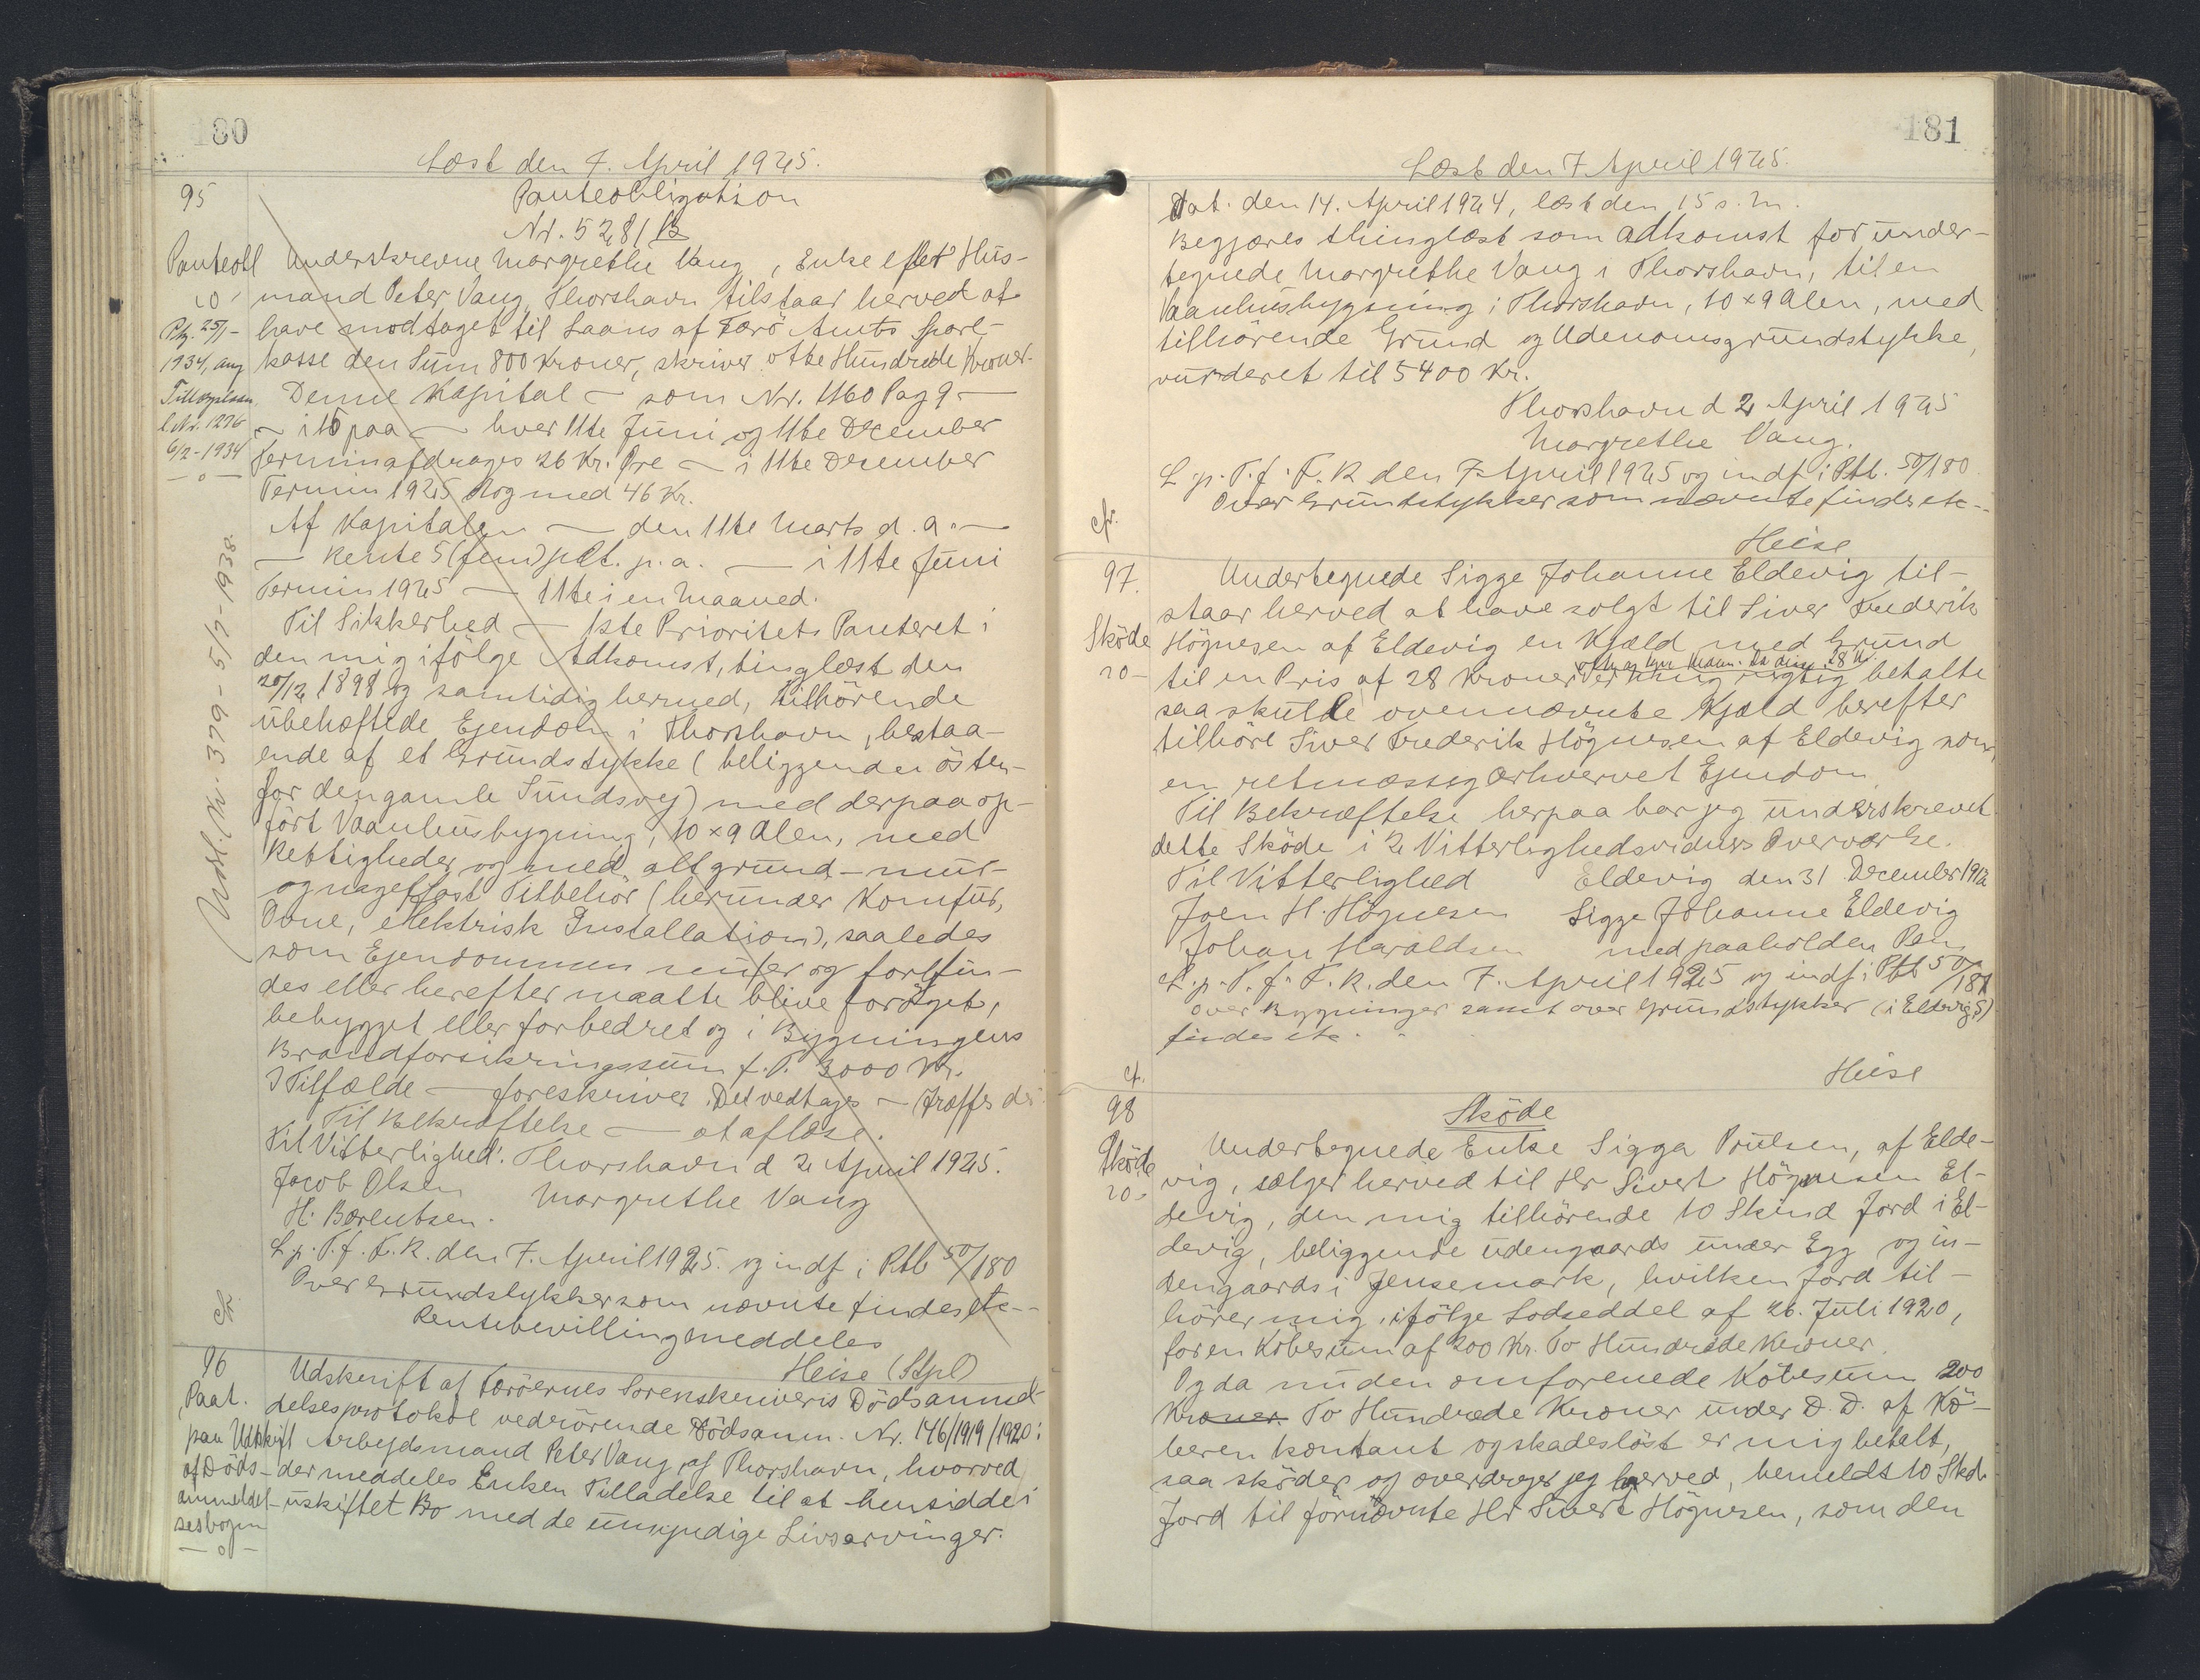 180
Læst den 7. April 1925.
95
Panteobligation
Nr. 5281 B
Panteobl
10
Undertskrevne Margrethe Vang, Enke efter Hus-
mand Peter Vang, Thorshavn tilstaar herved at
have modtaget til Laans af Færö Amts Spare-
kasse den Sum 800 Kroner, skriver otte Hundrede Kroner.
Denne Kapital — som Nr. 1160 Pag 9 —
— i 15 paa — hver 11te Juni og 11te December
Termin afdrages 26 Kr. Öre — i 11te December
Termin 1925 dog med 46 Kr.
Ptg. 25/1-
1934, ang
l Nr. 1276
6/2-1934
— o —
Af Kapitalen — den 11te Marts d. a. —
— Rente 5 (fem) pCt. p. a. — i 11te Juni
Termin 1925 — 11te i en Maaned.
Til Sikkerhed — 1ste Prioritets Panteret i
den mig ifölge Adkomst, tinglæst den
20/12 1898 og samtidig hermed, tilhörende
ubehæftede Ejendom i Thorshavn, bestaa-
ende af et Grundstykke (beliggende östen-
for den gamle Sundsvej) med derpaa op-
fört Vaanhusbygning, 10 × 9 Alen, med
Rettigheder og med alt grund- mur-
og nagelfast Tilbehör (herunder Komfur,
Ovne, elektrisk Installation), saaledes
som Ejendommen nu er og forefin-
des eller herefter maatte blive foröget,
bebygget eller forbedret og i Bygningens
Brandforsikringssum f. T. 3000 Kr.
I Tilfælde — foreskriver. Det vedtages — træffes der
Til Bekræftelse — at aflæse.
Til Vitterlighed: Thorshavn d 2 April 1925.
Jacob Olsen Margrethe Vang
H. Bærentsen.
L. p. T. f. F. R. den 7. April 1925. og indf i Ptb 50/180
Over Grundstykker som nævnte findes etc--
Rentebevilling meddeles
Heise (Stpl)
Udsl. l. Nr. 379 - 5/7-1938
cfr.
96
Paat.
paa Udskrift
af Döds-
anmeldel-
sesbogen
— o —
Udskrift af Færöernes Sorenskriveris Dödsanmel-
delsesprotokol vedrörende Dödsanm. Nr. 146/1919/1920:
Arbejdsmand Peter Vang, af Thorshavn, hvorved
der meddeles Enken Tilladelse til at hensidde i
uskiftet Bo med de umyndige Livsarvinger.
181
Læst den 7 April 1925.
Dat. den 14. April 1924, læst den 15 s. m.
Begjæres thinglæst som Adkomst for under-
tegnede Margrethe Vang i Thorshavn, til en
Vaanhusbygning i Thorshavn, 10 × 9 Alen, med
tilhörende Grund og Udenomsgrundstykke,
vurderet til 5400 Kr.
Thorshavn d 2 April 1925
Margrethe Vang.
L p. T. f. F. R den 7 April 1925 og indf i Ptb. 50/180
Over Grundstykker som nævnte findes etc--
cfr.
Heise
97.
Sköde
20-
Undertegnede Sigge Johanne Eldevig til-
staar herved at have solgt til Siver Frederik
Högnesen af Eldevig en Kjæld med Grund
til en Pris af 28 Kroner er mig rigtig betalte
saa skulde ovennævnte Kjæld herefter
tilhöre Siver Frederik Högnesen af Eldevig som
en retmæssig erhvervet Ejendom.
Til Bekræftelse herpaa har jeg underskrevet
dette Sköde i 2 Vitterlighedsvidners Overværelse.
Til Vitterlighed Eldevig den 31 December 1912
Joen H. Högnesen Sigge Johanne Eldevig
Johan Haraldsen med paaholden Pen
L. p. T. f. F. R. den 7. April 1925 og indf i Ptb 50/181
Over Bygninger samt over Grundstykker (i Eldevig)
findes etc.
cf.
Heise
98
Sköde
20-
Sköde
Undertegnede Enke Sigga Poulsen, af Elde-
vig, sælger herved til Hr Sivert Högnesen El-
devig, den mig tilhörende 10 Skind Jord i El-
devig, beliggende udengaards under Egg og in-
dengaards i Jensemark, hvilken Jord til-
hörer mig, ifölge Lodseddel af 26. Juli 1920,
for en Köbesum af 200 Kr. To Hundrede Kroner.
Og da nu den omforenede Köbesum 200
Kroner. To Hundrede Kroner under D. D. af Kö-
beren kontant og skadeslöst er mig betalt,
saa sköder og overdrager jeg herved, bemeldt 10 Skd.
Jord til förnævnte Hr Sivert Högnesen, som den